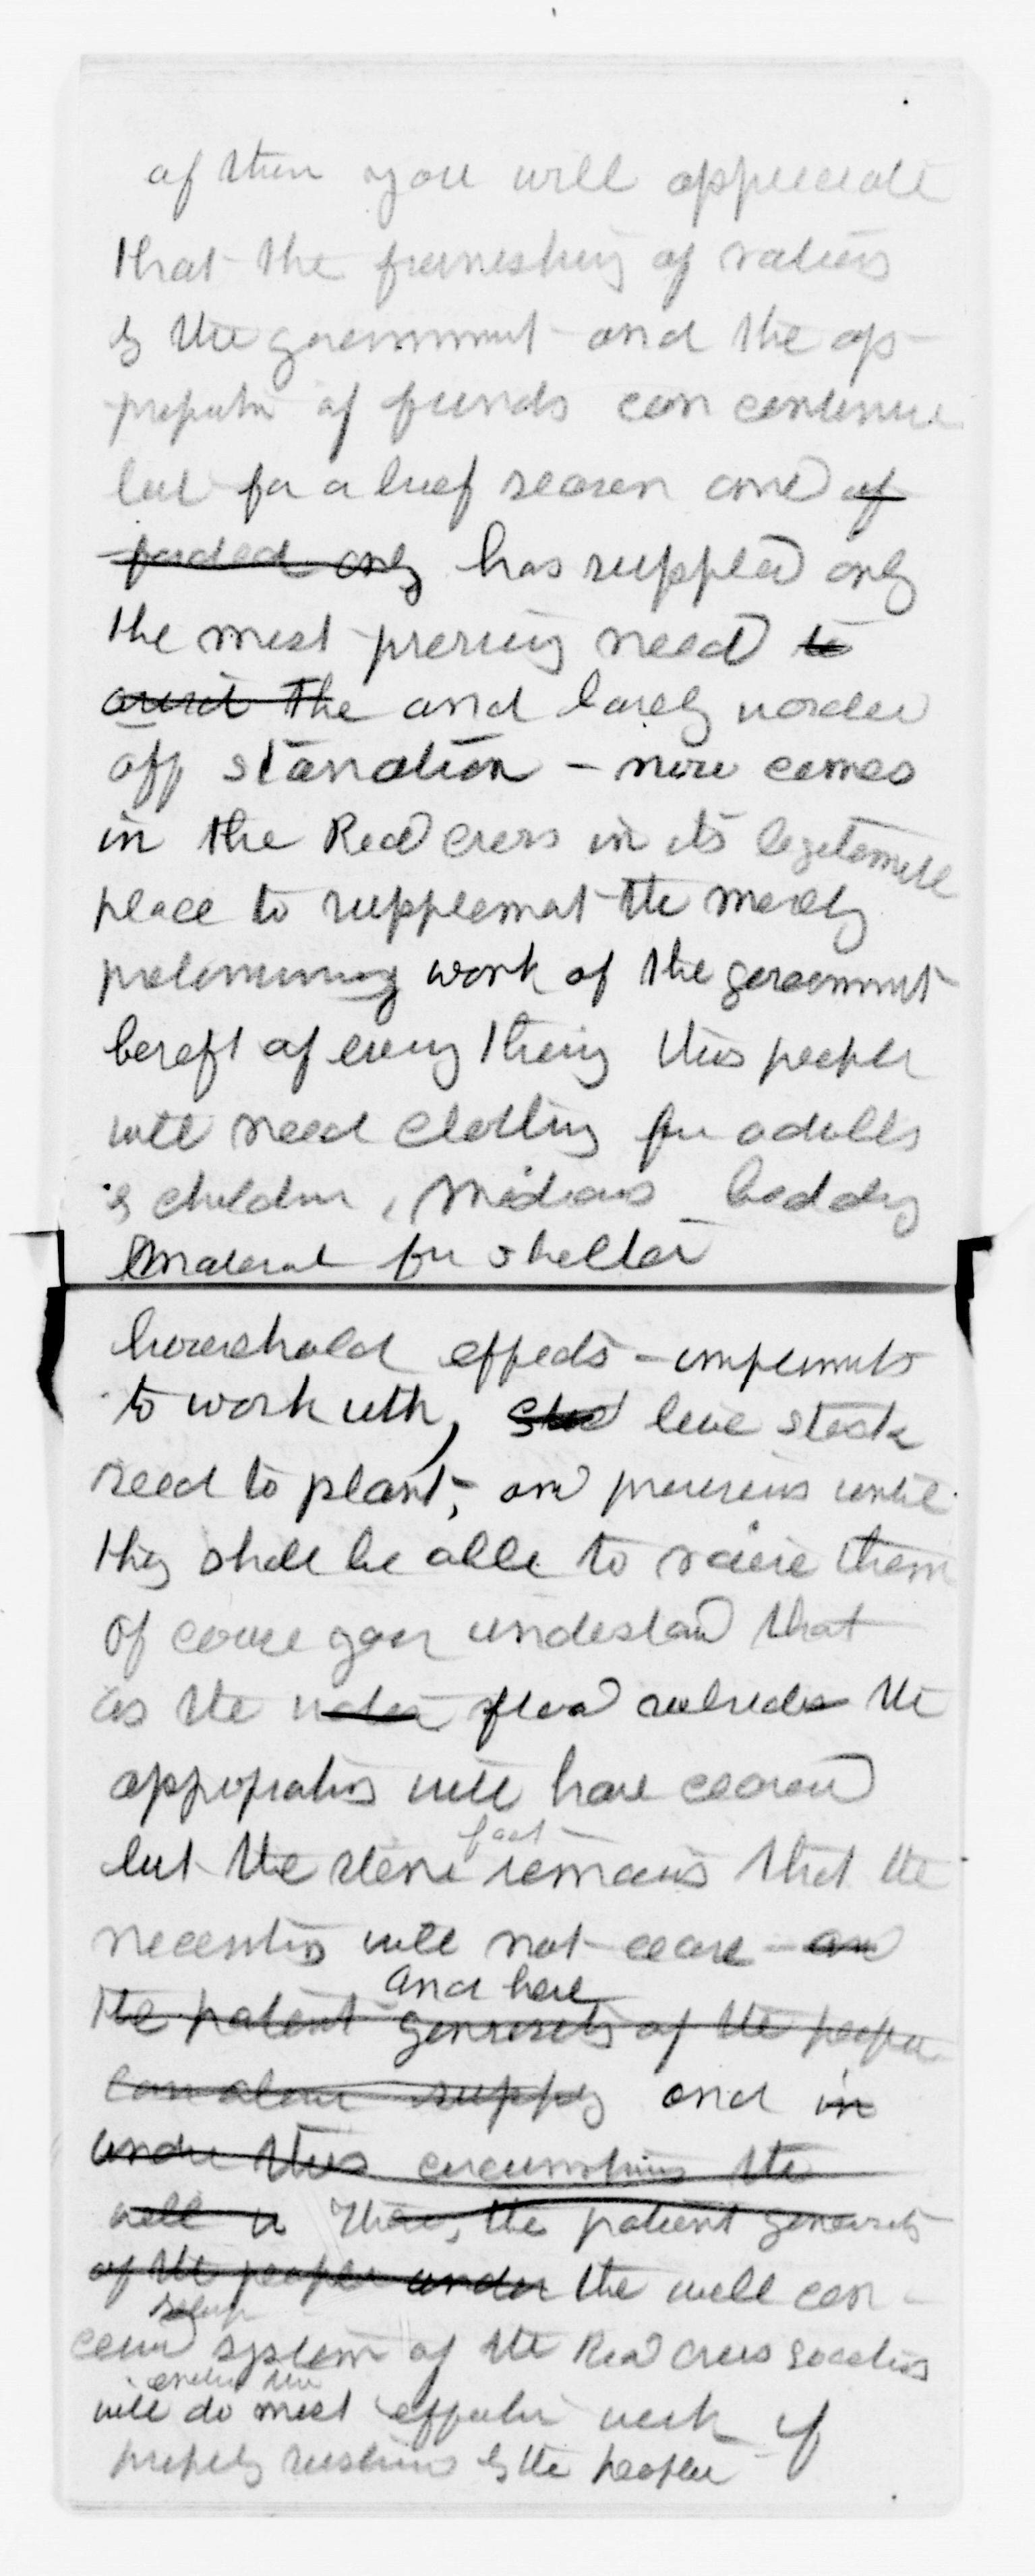 of them you will appreciate
that the furnishing of rations
by the government and the ap-
propriatn of funds can continue
but for a brief season and of
forded only has supplied only
the most pressing need to
assist the and barely warded
off starvation - now comes
in the Red Cross in its legitimate
place to supplemat the merely
prelimining work of the government
bereft of every thing this people
will need clothing for adults
& children, Medicins bedding
material for shelter
household effects - implemnts
to work with, live stock
seed to plant, and provisions until
they shall be able to raise them
of course you understand that
as the water flood subsides the
appropriatins will have ceased
but the stern fact remains that the
necesitis will not cease - and
and here
the patent generosity of the people
can alone supply and in
under this circumstances the
well u There, the patient generosity
of the people under the well con-
ceivd system of the Red Cross Societies
will do most effectiv work if
properly sustaind by the people